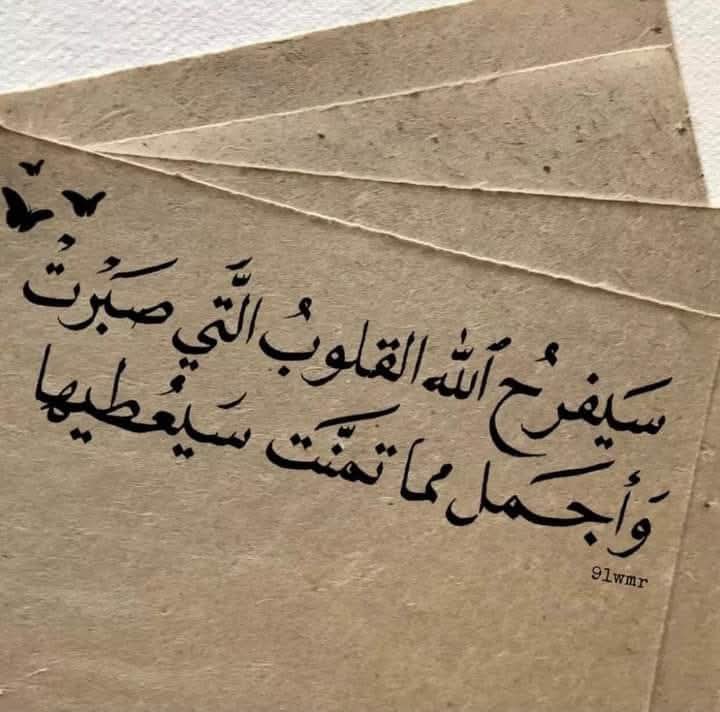 سَيفرُح ٱلله القلوبُ الَّتي صَبَرتْ
وَأجمَل مما تمنَّت سَيُعطيها
9lwmr